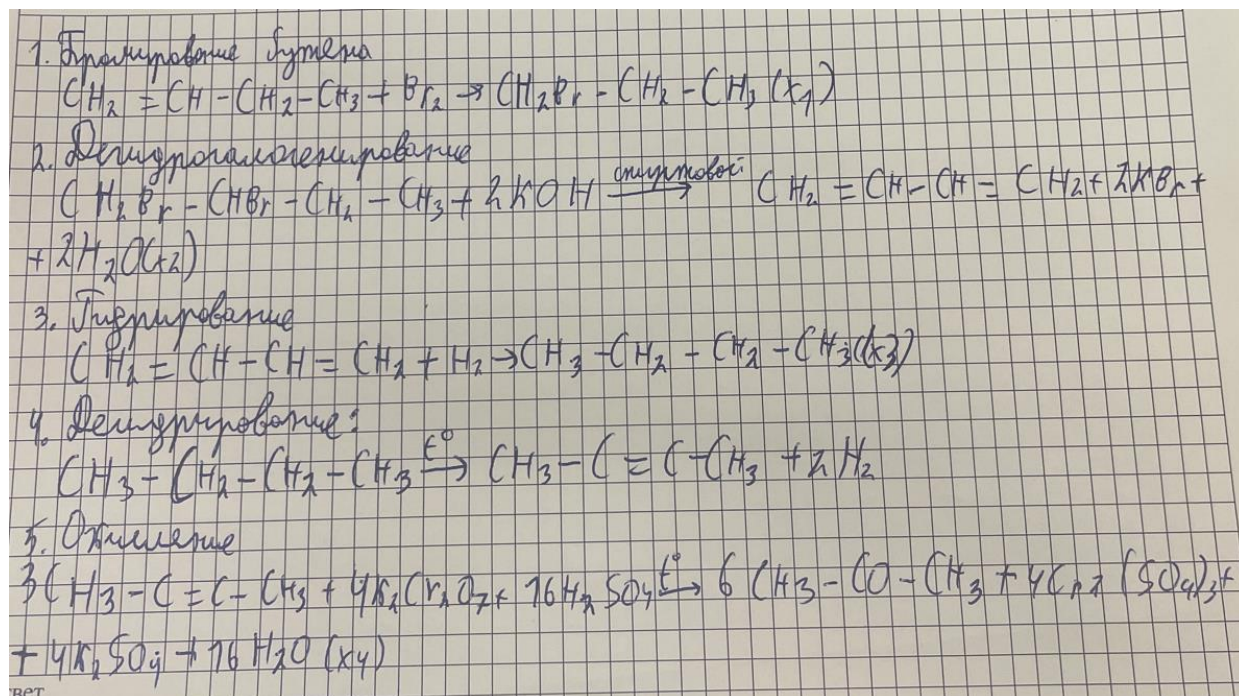 1. Бромирование бутена
CH₂ = CH - CH₂ - CH₃ + Br₂ → CH₂Br - CH₂ - CH₃ (x₁)
2. Дегидрогалогенирование
CH₂Br - CHBr - CH₂ - CH₃ + 2KOH спиртовой → CH₂ = CH - CH = CH₂ + 2KBr +
+ 2H₂O(x2)
3. Гидрирование
CH₂ = CH - CH = CH₂ + H₂ → CH₃ - CH₂ - CH₂ - CH₃ (x3)
4. Дегидрирование:
CH₃ - CH₂ - CH₂ - CH₃ t° → CH₃ - C = C - CH₃ + 2H₂
5. Окисление
3CH₃ - C = C - CH₃ + 4K₂Cr₂O₇ + 16H₂SO₄ t° → 6CH₃ - CO - CH₃ + 4Cr₂(SO₄)₃ +
+ 4K₂SO₄ + 16H₂O (x4)